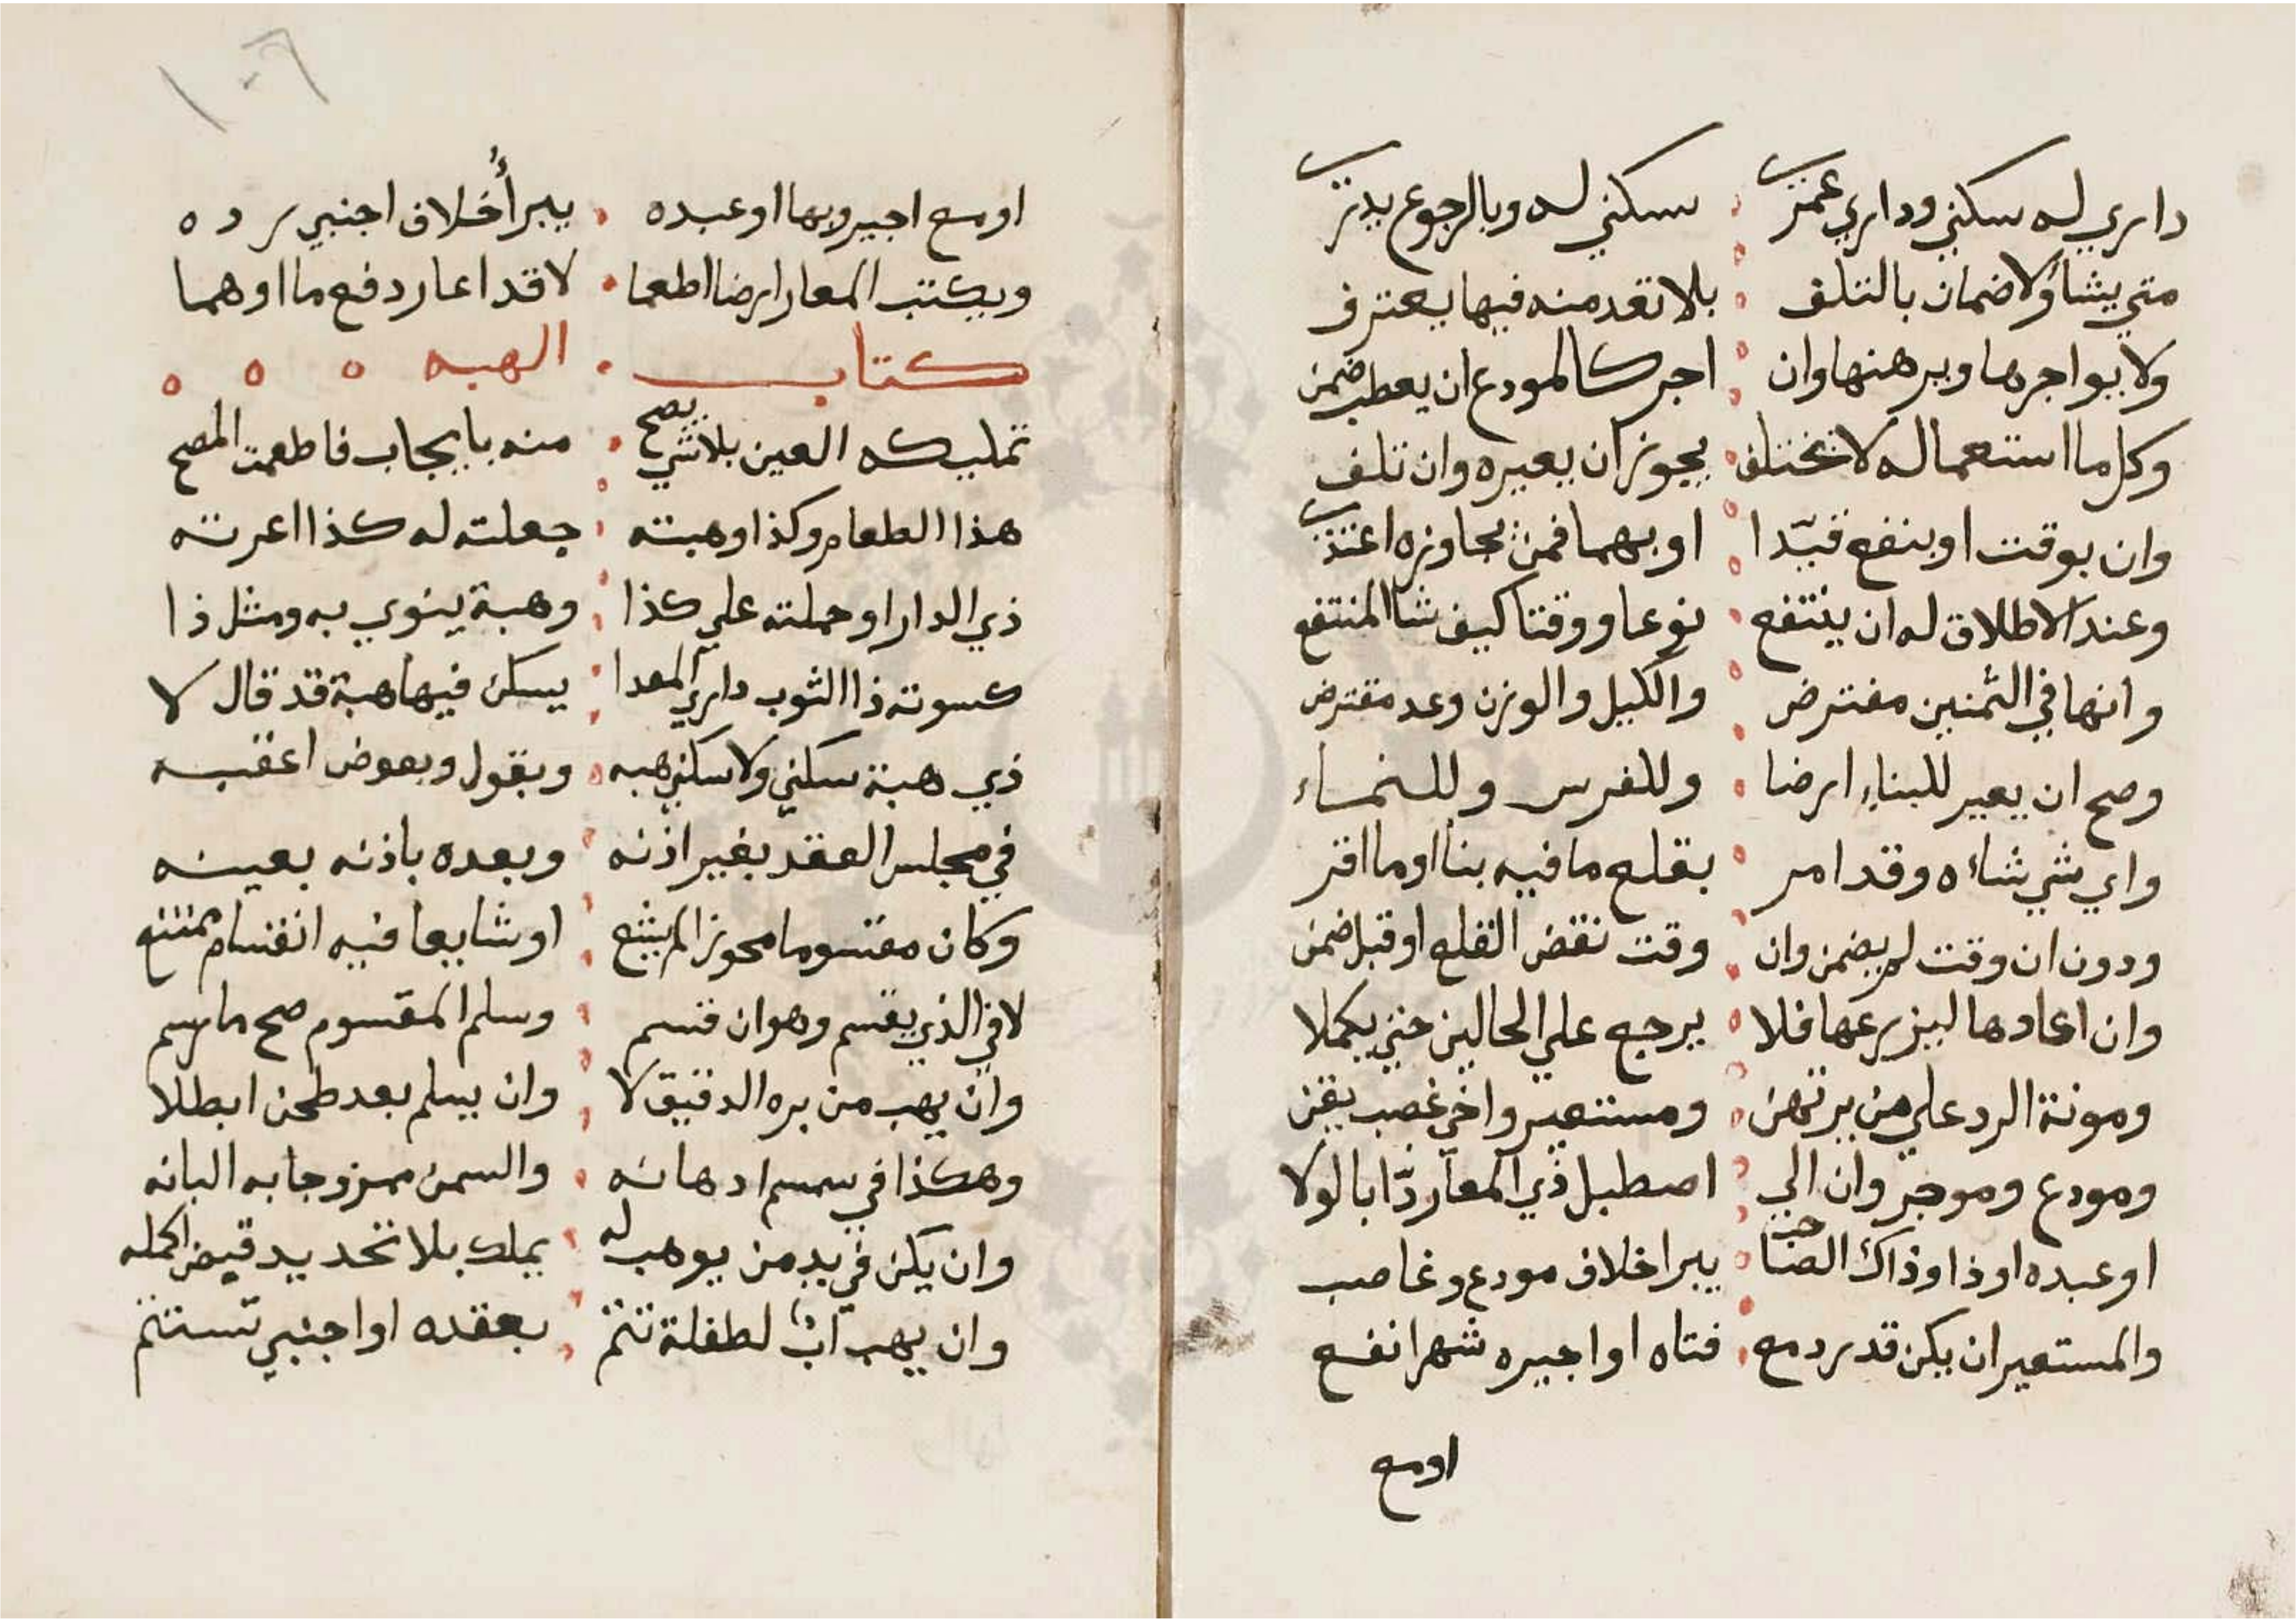 داري له سكني وداري عمرت سكني له وبالرجوع بدرت
متي يشا ولا ضمان بالتلف بلا تعد منه فيها يعترف
ولا يواجرها ويرهنها وان اجر كالمودع ان يعطب ضمن
وكل ما استعماله لا تختلف يجوز ان يعيره وان تلف
وان بوقت او بنفع قيّدا او بهما فمن تجاوزه اعتدت
وعند الاطلاق له ان ينتفع نوعا ووقتا كيف شا المنتفع
وانها في الثمنين مفترض والكيل والوزن وعد مقترض
وصح ان يعير للبناء ارضا وللغرس وللنماء
واي شي شاءه وقد امر بقلع ما فيه بنا او ما اقر
ودون ان وقت لم يضمن وان وقت نقض القلع او قبل ضمن
وان اعادها ليزرعها فلا يرجع علي الحالين حتي يكملا
ومونة الرد علي من يرتهن ومستعير واخي غصب يقن
ومودع وموجر وان الي اصطبل ذي المعار ردّا بالولا
او عبده او ذا وذاك الصاحب يبرا خلاف مودع وغاصب
والمستعير ان يكن قد رد مع فتاه او اجيره شهرا نفع
اومع
١٠٦
اومع اجير ربها او عبده يبرأ خلاف اجنبي رده
ويكتب المعار ارضا اطعما لا قد اعار دفع ما اوهما
كتاب الهبه
تمليكه العين بلا شي يصح منه بايجاب فاطعمت المصح
هذا الطعام وكذا وهبته جعلته له كذا اعرته
ذي الدار او حملته علي كذا وهبة ينوي به ومثل ذا
كسوته ذا الثوب داري المعدا يسكن فيها هبة قد قال لا
ذي هبة سكني ولا سكني هبه وبقول وبعوض اعقبه
في مجلس العقد بغير اذنه وبعده باذنه بعينه
وكان مقسوما محوزا لم يشع او شايعا فيه انقسام ممتنع
لا في الذي يقسم وهو ان قسم وسلم المقسوم صح ما رسم
وان يهب من بره الدقيق لا وان يسلم بعد طحن ابطلا
وهكذا في سمسم ادهانه والسمن ممزوجا به البانه
وان يكن في يد من يوهب له يملك بلا تحديد قبض اكمله
وان يهب اب لطفلة تتم بعقده او اجنبي تستتم